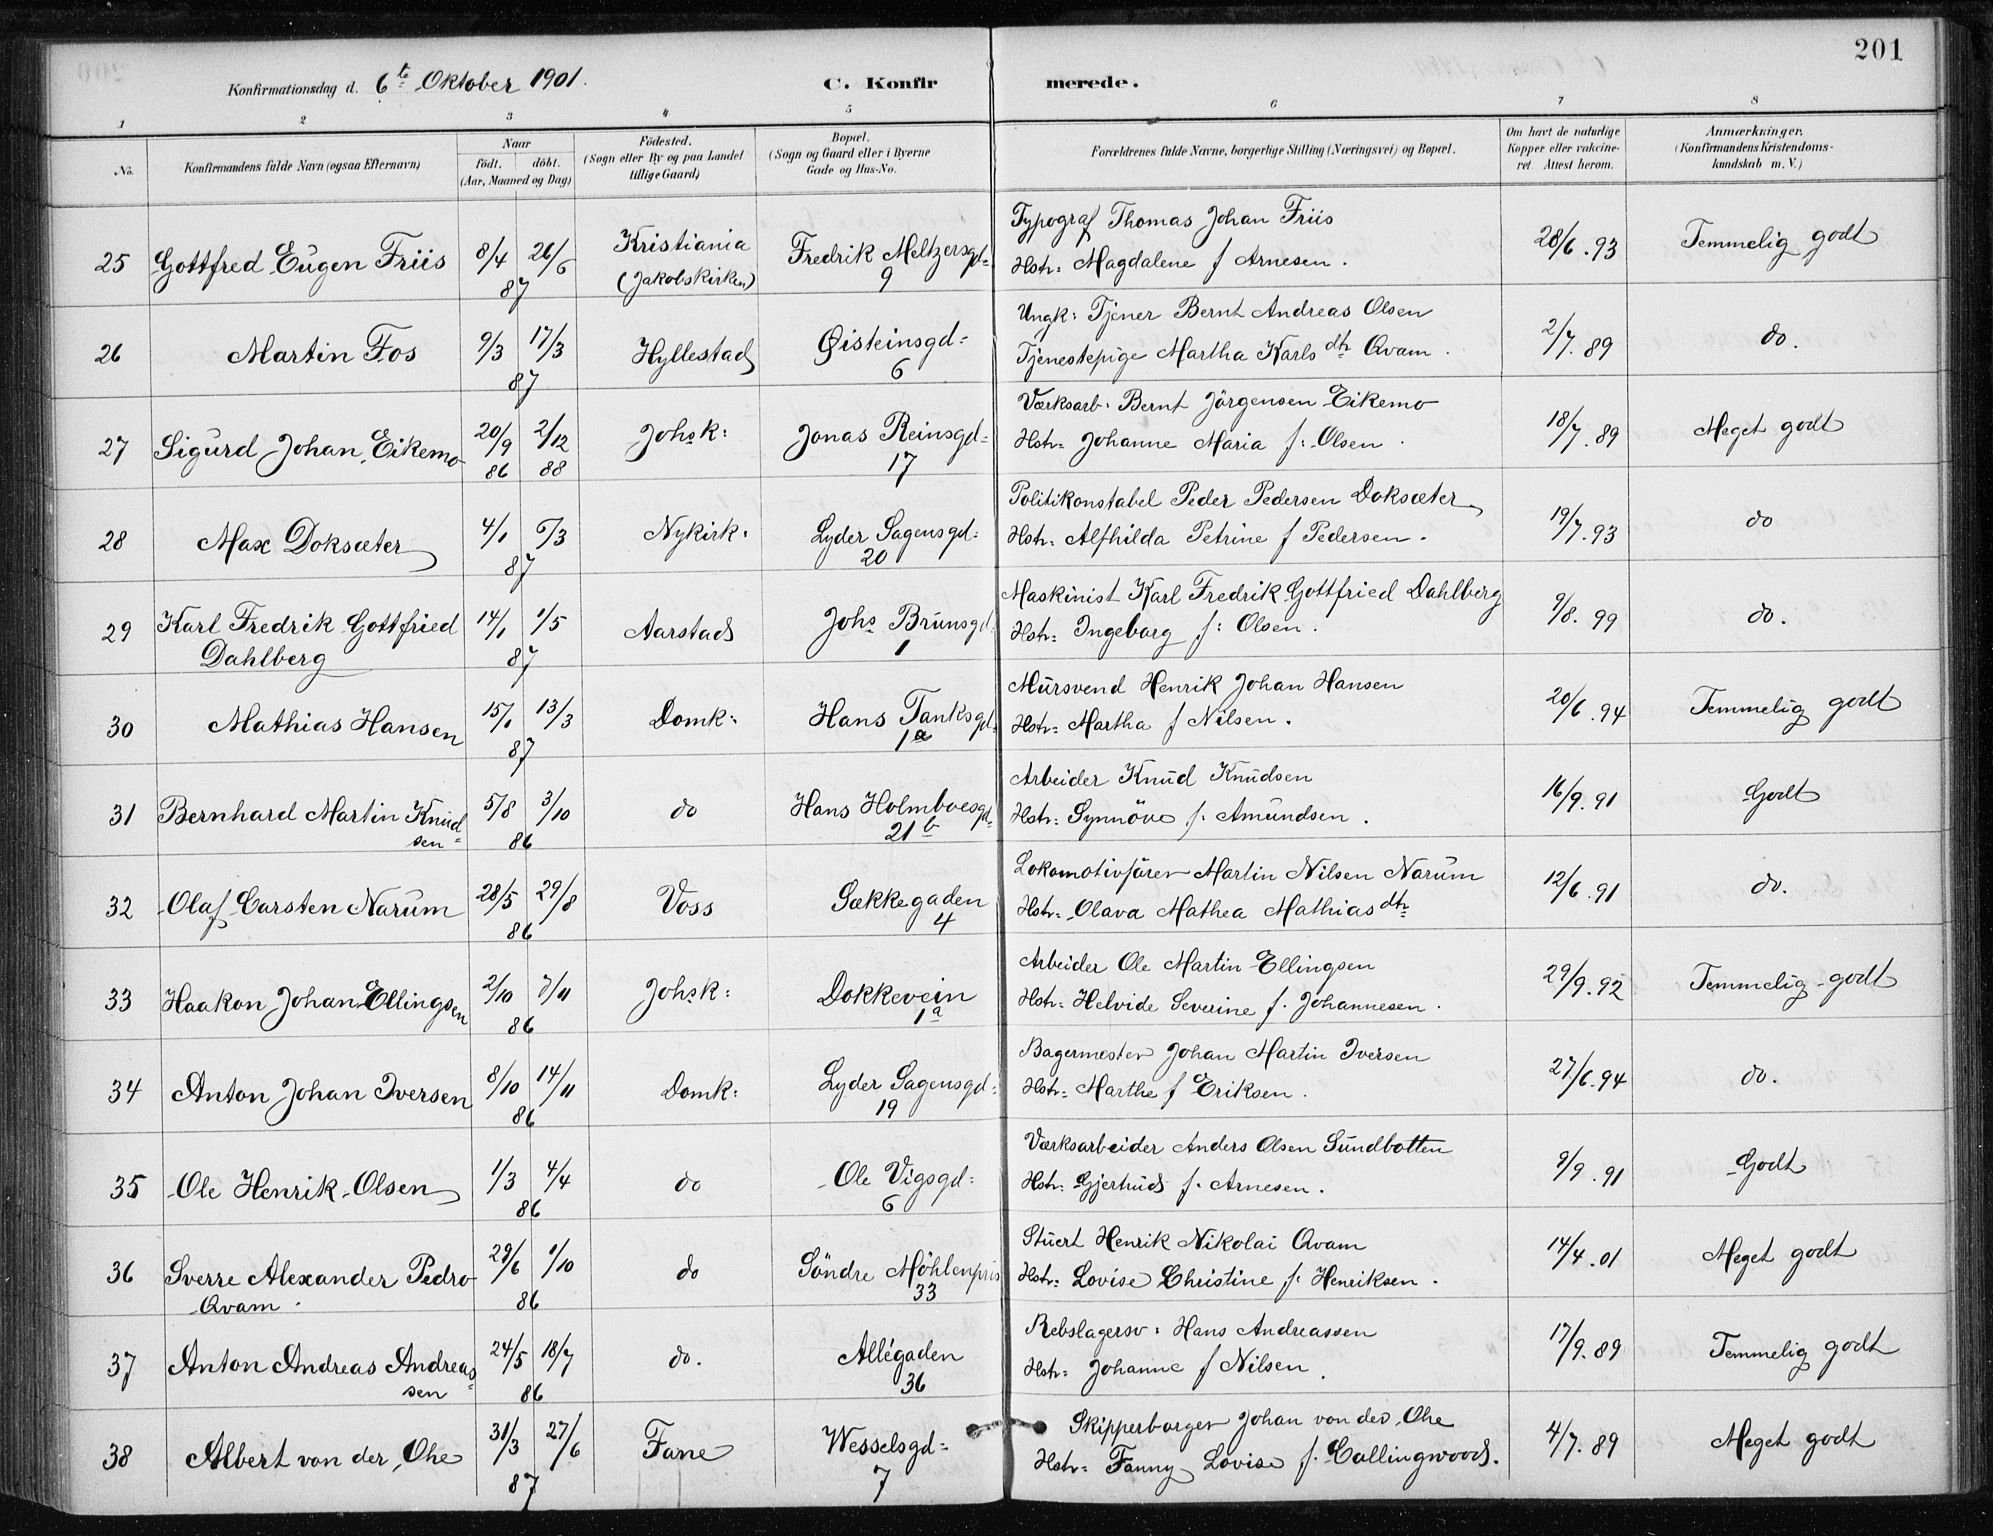 201
Konfirmationsdag d. 6te Oktober 1901.
C. Konfir merede.
1 2 3 4 5 6 7 8
No. Konfirmandens fulde Navn (ogsaa Efternavn) Naar født. døbt. (Aar, Maaned og Dag) Fødested. (Sogn eller By og paa Landet tillige Gaard) Bopæl. (Sogn og Gaard eller i Byerne Gade og Hus-No. Forældrenes fulde Navne, borgerlige Stilling (Næringsvei) og Bopæl. Om havt de naturlige Kopper eller vakcineret. Attest herom. Anmærkninger. (Konfirmandens Kristendomskundskab m. V.)
25 Gottfred Eugen Friis 8/4 26/6 87 Kristiania (Jakobskirken) Fredrik Meltzersgd= 9 Typograf Thomas Johan Friis
Hstr: Magdalene f Arnesen. 28/6.93 Temmelig godt
26 Martin Fos 9/3 17/3 87 Hyllestad Øisteinsgd= 6 Ungk: Tjener Bernt Andreas Olsen
Tjenestepige Martha Karlsdtr Qvam. 2/7.89 do.
27 Sigurd Johan Eikemo 20/9 86 2/12 88 Johsk: Jonas Reinsgd= 17 Værksarb: Bernt Jörgensen Eikemo
Hstr: Johanne Maria f: Olsen. 18/7.89 Meget godt
28 Max Doksæter 4/1 6/3 87 Nykirk: Lyder Sagensgd= 20 Politikonstabel Peder Pedersen Doksæter
Hstr: Alfhilda Petrine f Pedersen. 19/7.93 do
29 Karl Fredrik Gottfried Dahlberg 14/1 1/5 87 Aarstad Johs Brunsgd 1 Maskinist Karl Fredrik Gottfried Dahlberg
Hstr: Ingeborg f: Olsen. 9/8.99 do.
30 Mathias Hansen 15/1 13/3 87 Domk: Hans Tanksgd= 1a Mursvend Henrik Johan Hansen
Hstr: Martha f Nilsen. 20/6.94 Temmelig godt
31 Bernhard Martin Knudsen 5/8 3/10 86 do Hans Holmboesgd= 21b Arbeider Knud Knudsen
Hstr: Synnöve f. Amundsen. 16/9.91 Godt
32 Olaf Carsten Narum 28/5 29/8 86 Voss Sækkegaden 4 Lokomotivfører Martin Nilsen Narum
Hstr: Olava Mathea Mathiasdtr 12/6.91 do.
33 Haakon Johan Ellingsen 2/10 7/11 86 Johsk: Dokkevein 1a Arbeider Ole Martin Ellingsen
Hstr: Helvide Severine f. Johannesen. 29/9.92 Temmelig godt
34 Anton Johan Iversen 8/10 14/11 86 Domk: Lyder Sagensgd= 19 Bagermester Johan Martin Iversen
Hstr: Marthe f Eriksen. 27/6.94 do.
35 Ole Henrik Olsen 1/3 4/4 86 do Ole Vigsgd= 6 Værksarbeider Anders Olsen Sundbotten
Hstr: Gjertrud f. Arnesen. 9/9.91 Godt
36 Sverre Alexander Pedro Qvam. 29/6 1/10 86 do Söndre Möhlenpris 33 Stuert Henrik Nikolai Qvam
Hstr: Lovise Christine f. Henriksen. 14/4.01 Meget godt
37 Anton Andreas Andreassen 24/5 18/7 86 do. Allégaden 36 Rebslagersv: Hans Andreassen
Hstr: Johanne f Nilsen. 17/9.89 Temmelig godt
38 Albert von der Ohe 31/3 27/6 87 Fane Wesselsgd= 7 Skipperborger Johan von der Ohe
Hstr: Fanny Lovise f. Collingwood. 4/7.89 Meget godt